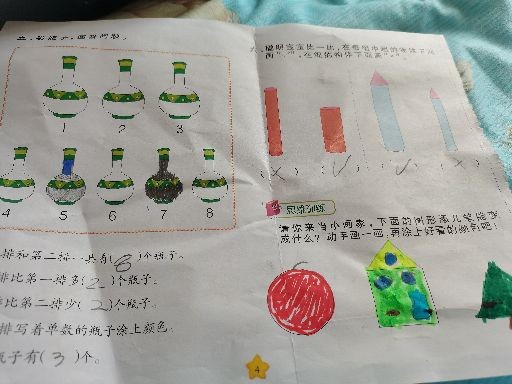 1 2 3
4 5 6 7 8
排和第二排一共有(8)个瓶子。
排比第一排多(2)个瓶子。
排比第二排少(2)个瓶子。
排写着单数的瓶子涂上颜色。
瓶子有(3)个。
六、聪明宝宝比一比,在每组中粗的物体下
(×) (√) (√) (×)
思维训练
请你来当小画家,下面的图形添几笔能变
成什么?动手画一画,再涂上好看的颜色吧!
4